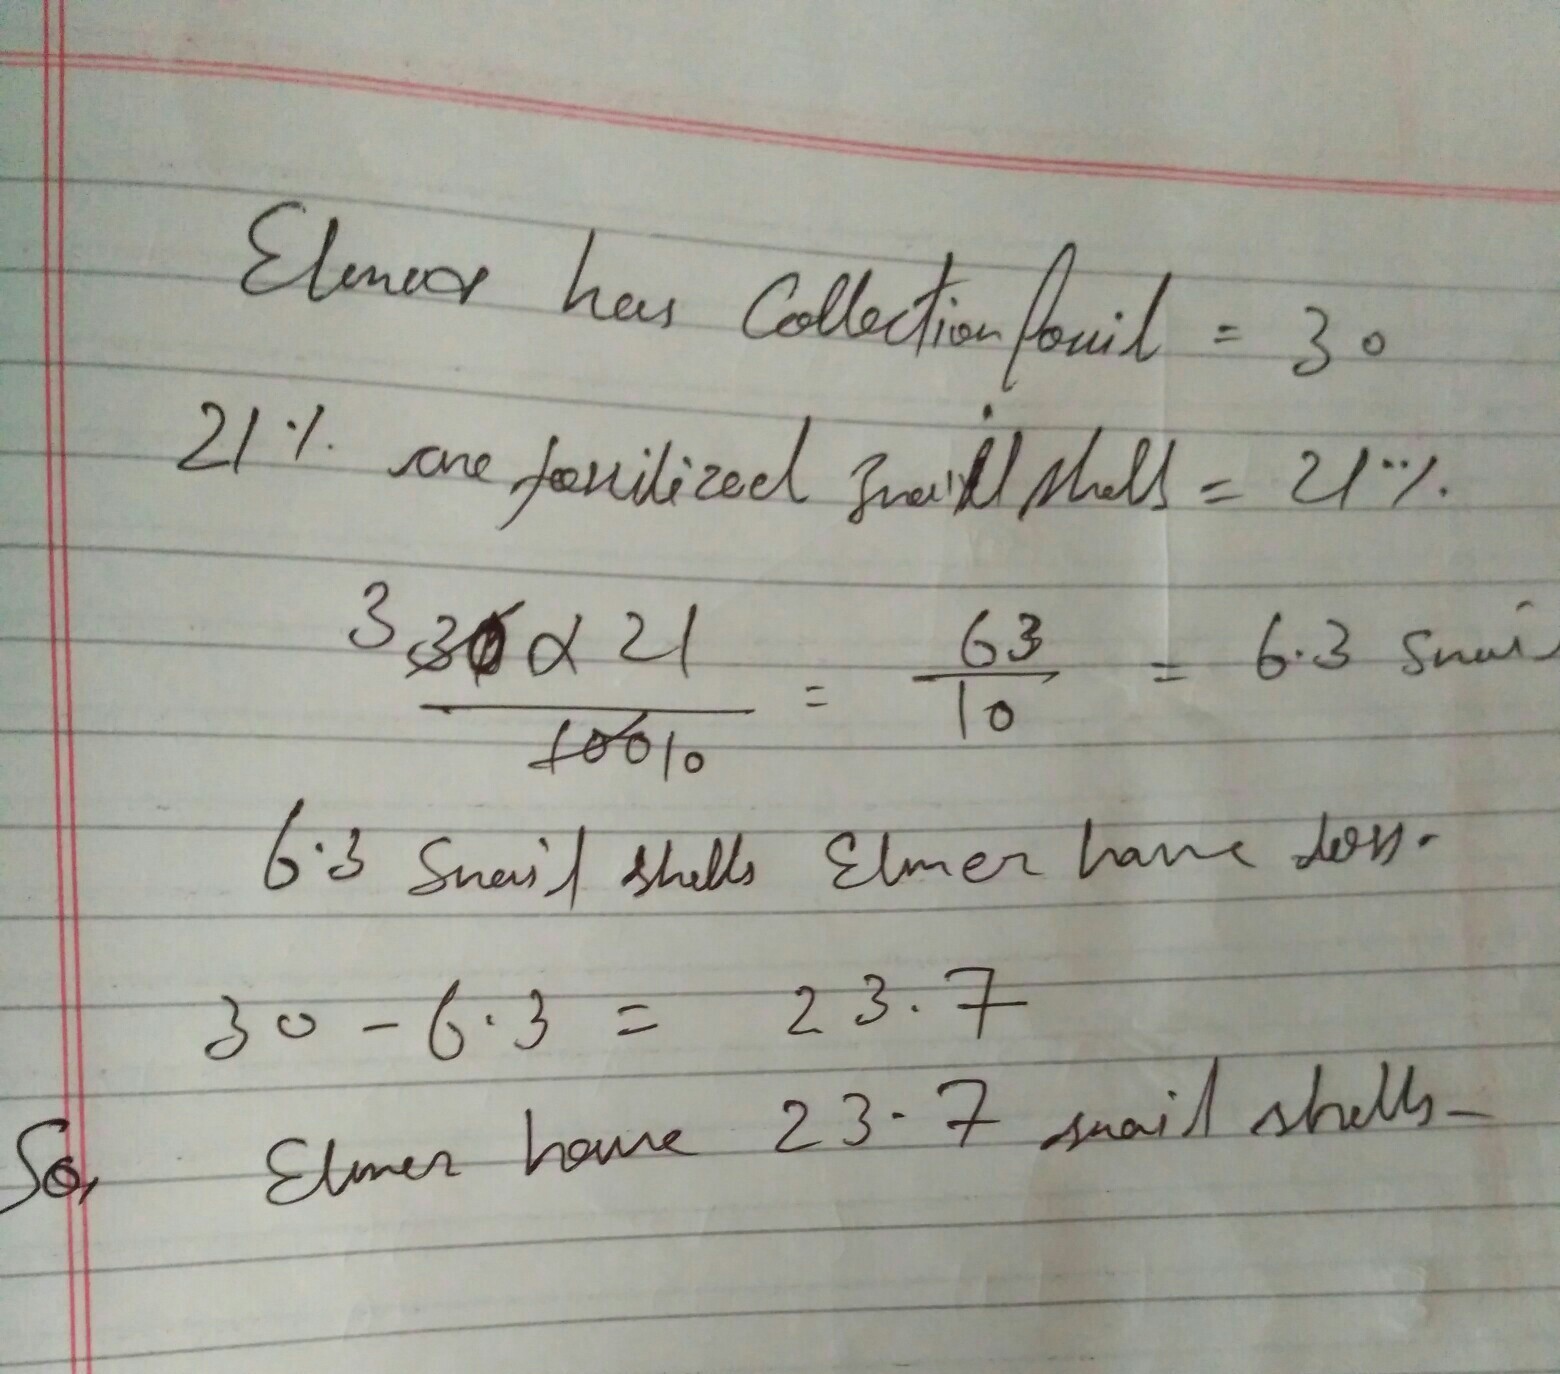 Elmer has Collection fossil = 30
21% are fossilized snail shells = 21%
3 30 x 21
100 10
= 63
10
= 6.3 Snai
6.3 Snail shells Elmer have loss.
30 - 6.3 = 23.7
So, Elmer have 23.7 snail shells-